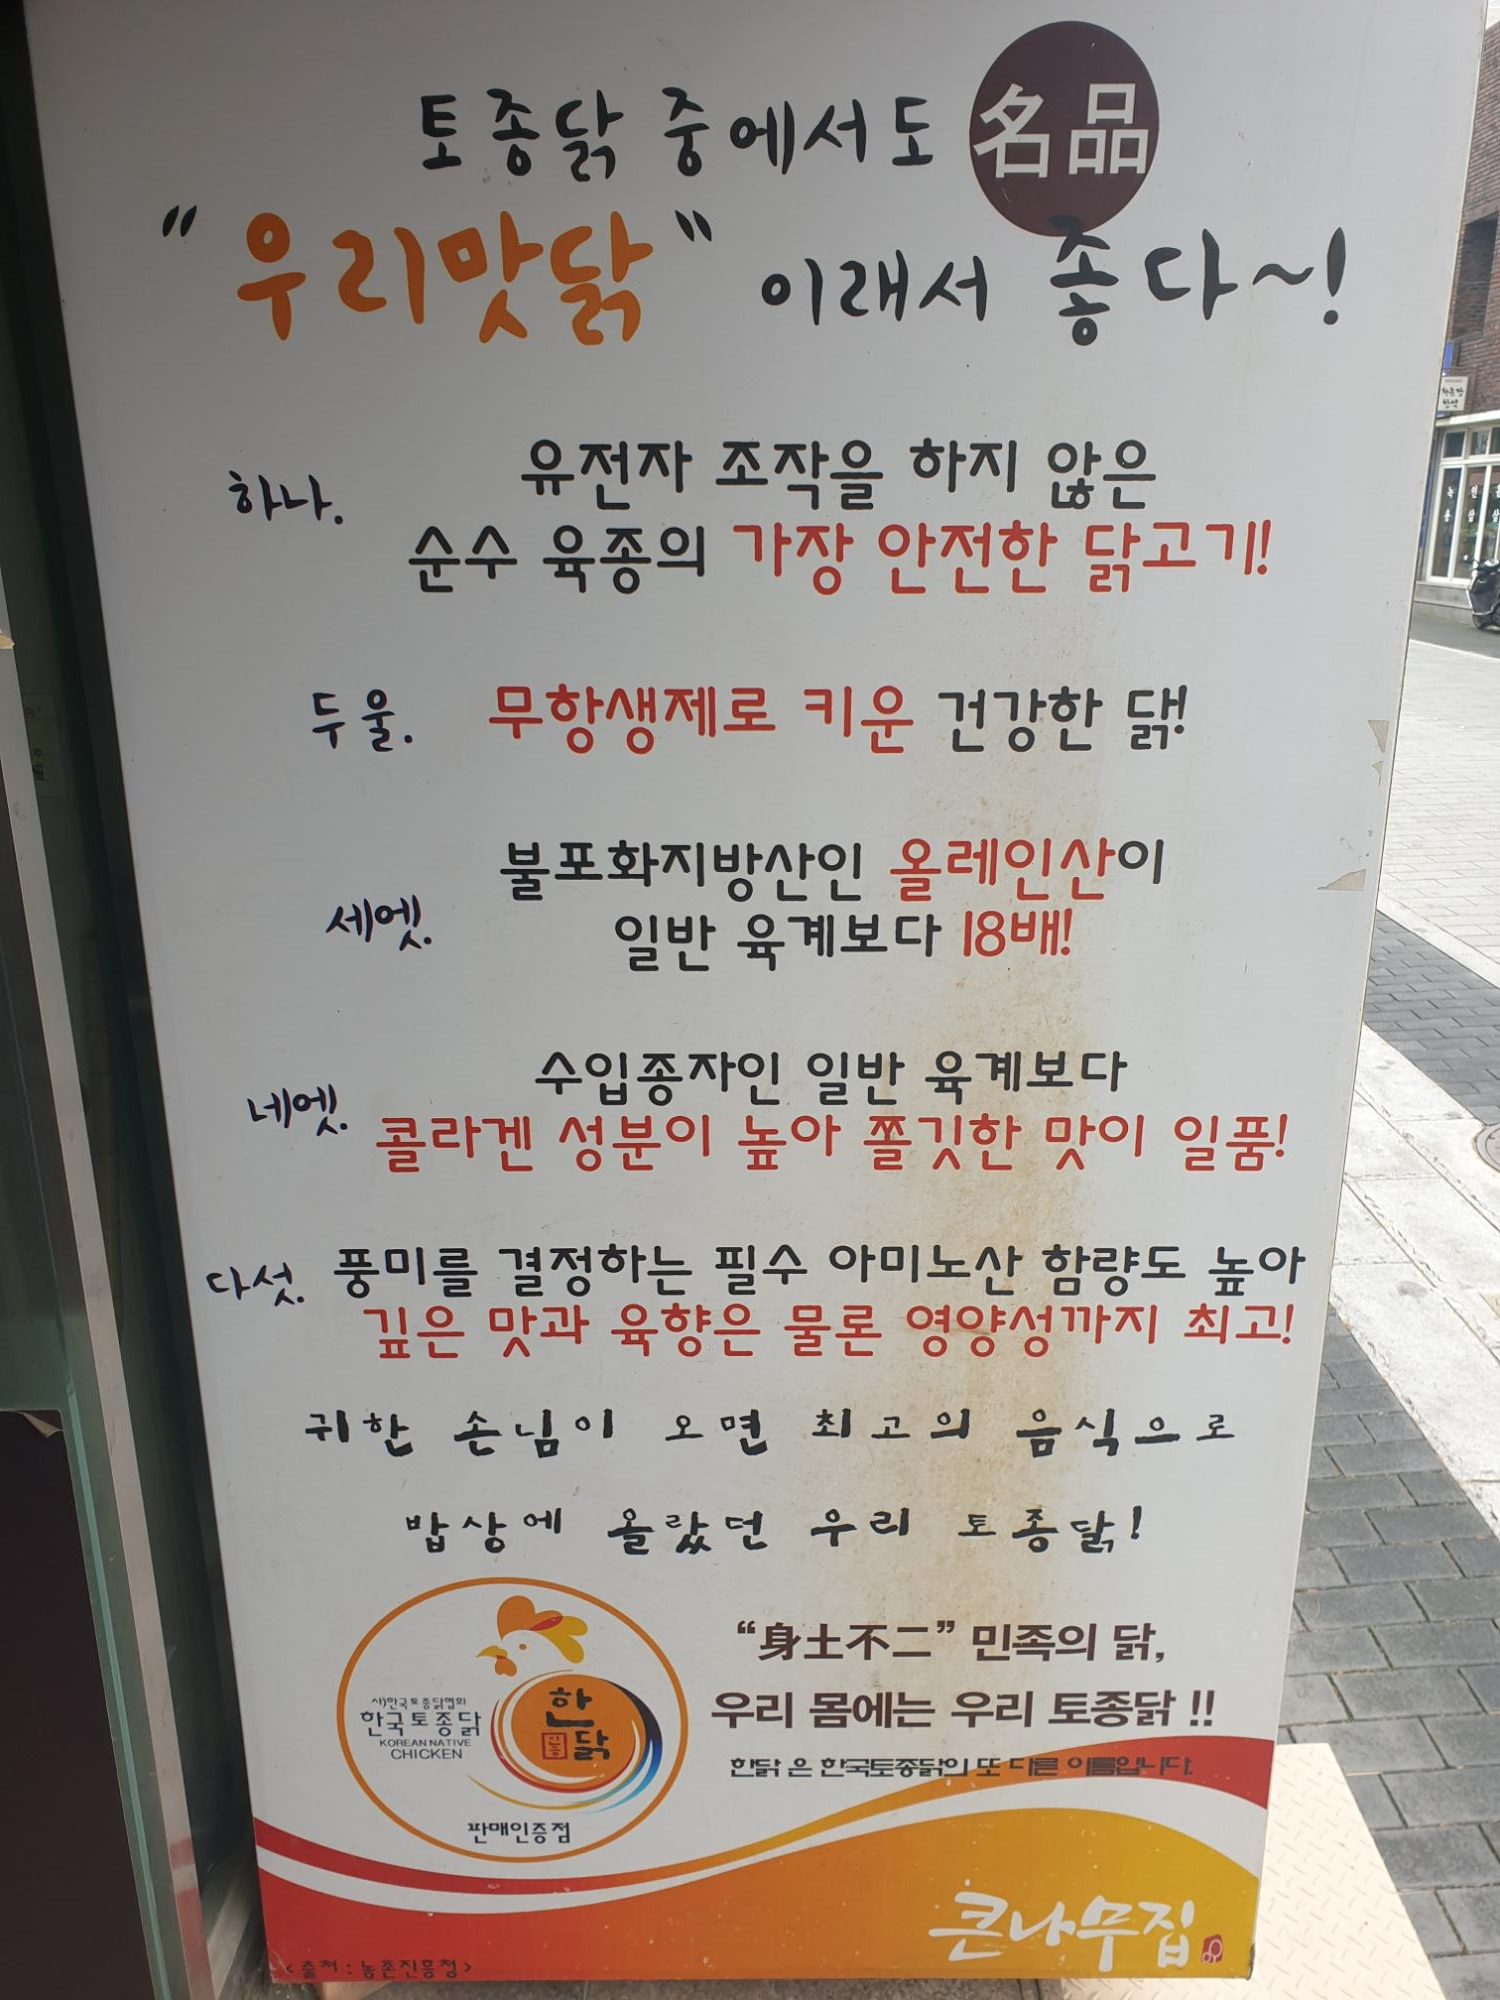 토종닭 중에서도 名品
"우리맛닭" 이래서 좋다~!
하나. 유전자 조작을 하지 않은
순수 육종의 가장 안전한 닭고기!
두울. 무항생제로 키운 건강한 닭!
세엣. 불포화지방산인 올레인산이
일반 육계보다 18배!
네엣. 수입종자인 일반 육계보다
콜라겐 성분이 높아 쫄깃한 맛이 일품!
다섯. 풍미를 결정하는 필수 아미노산 함량도 높아
깊은 맛과 육향은 물론 영양성까지 최고!
귀한 손님이 오면 최고의 음식으로
밥상에 올랐던 우리 토종닭!
사)한국토종닭협회
한국토종닭
KOREAN NATIVE
CHICKEN
한닭
판매인증점
"身土不二" 민족의 닭,
우리 몸에는 우리 토종닭 !!
한닭 은 한국토종닭의 또 다른 이름입니다.
큰나무집
<출처 : 농촌진흥청>